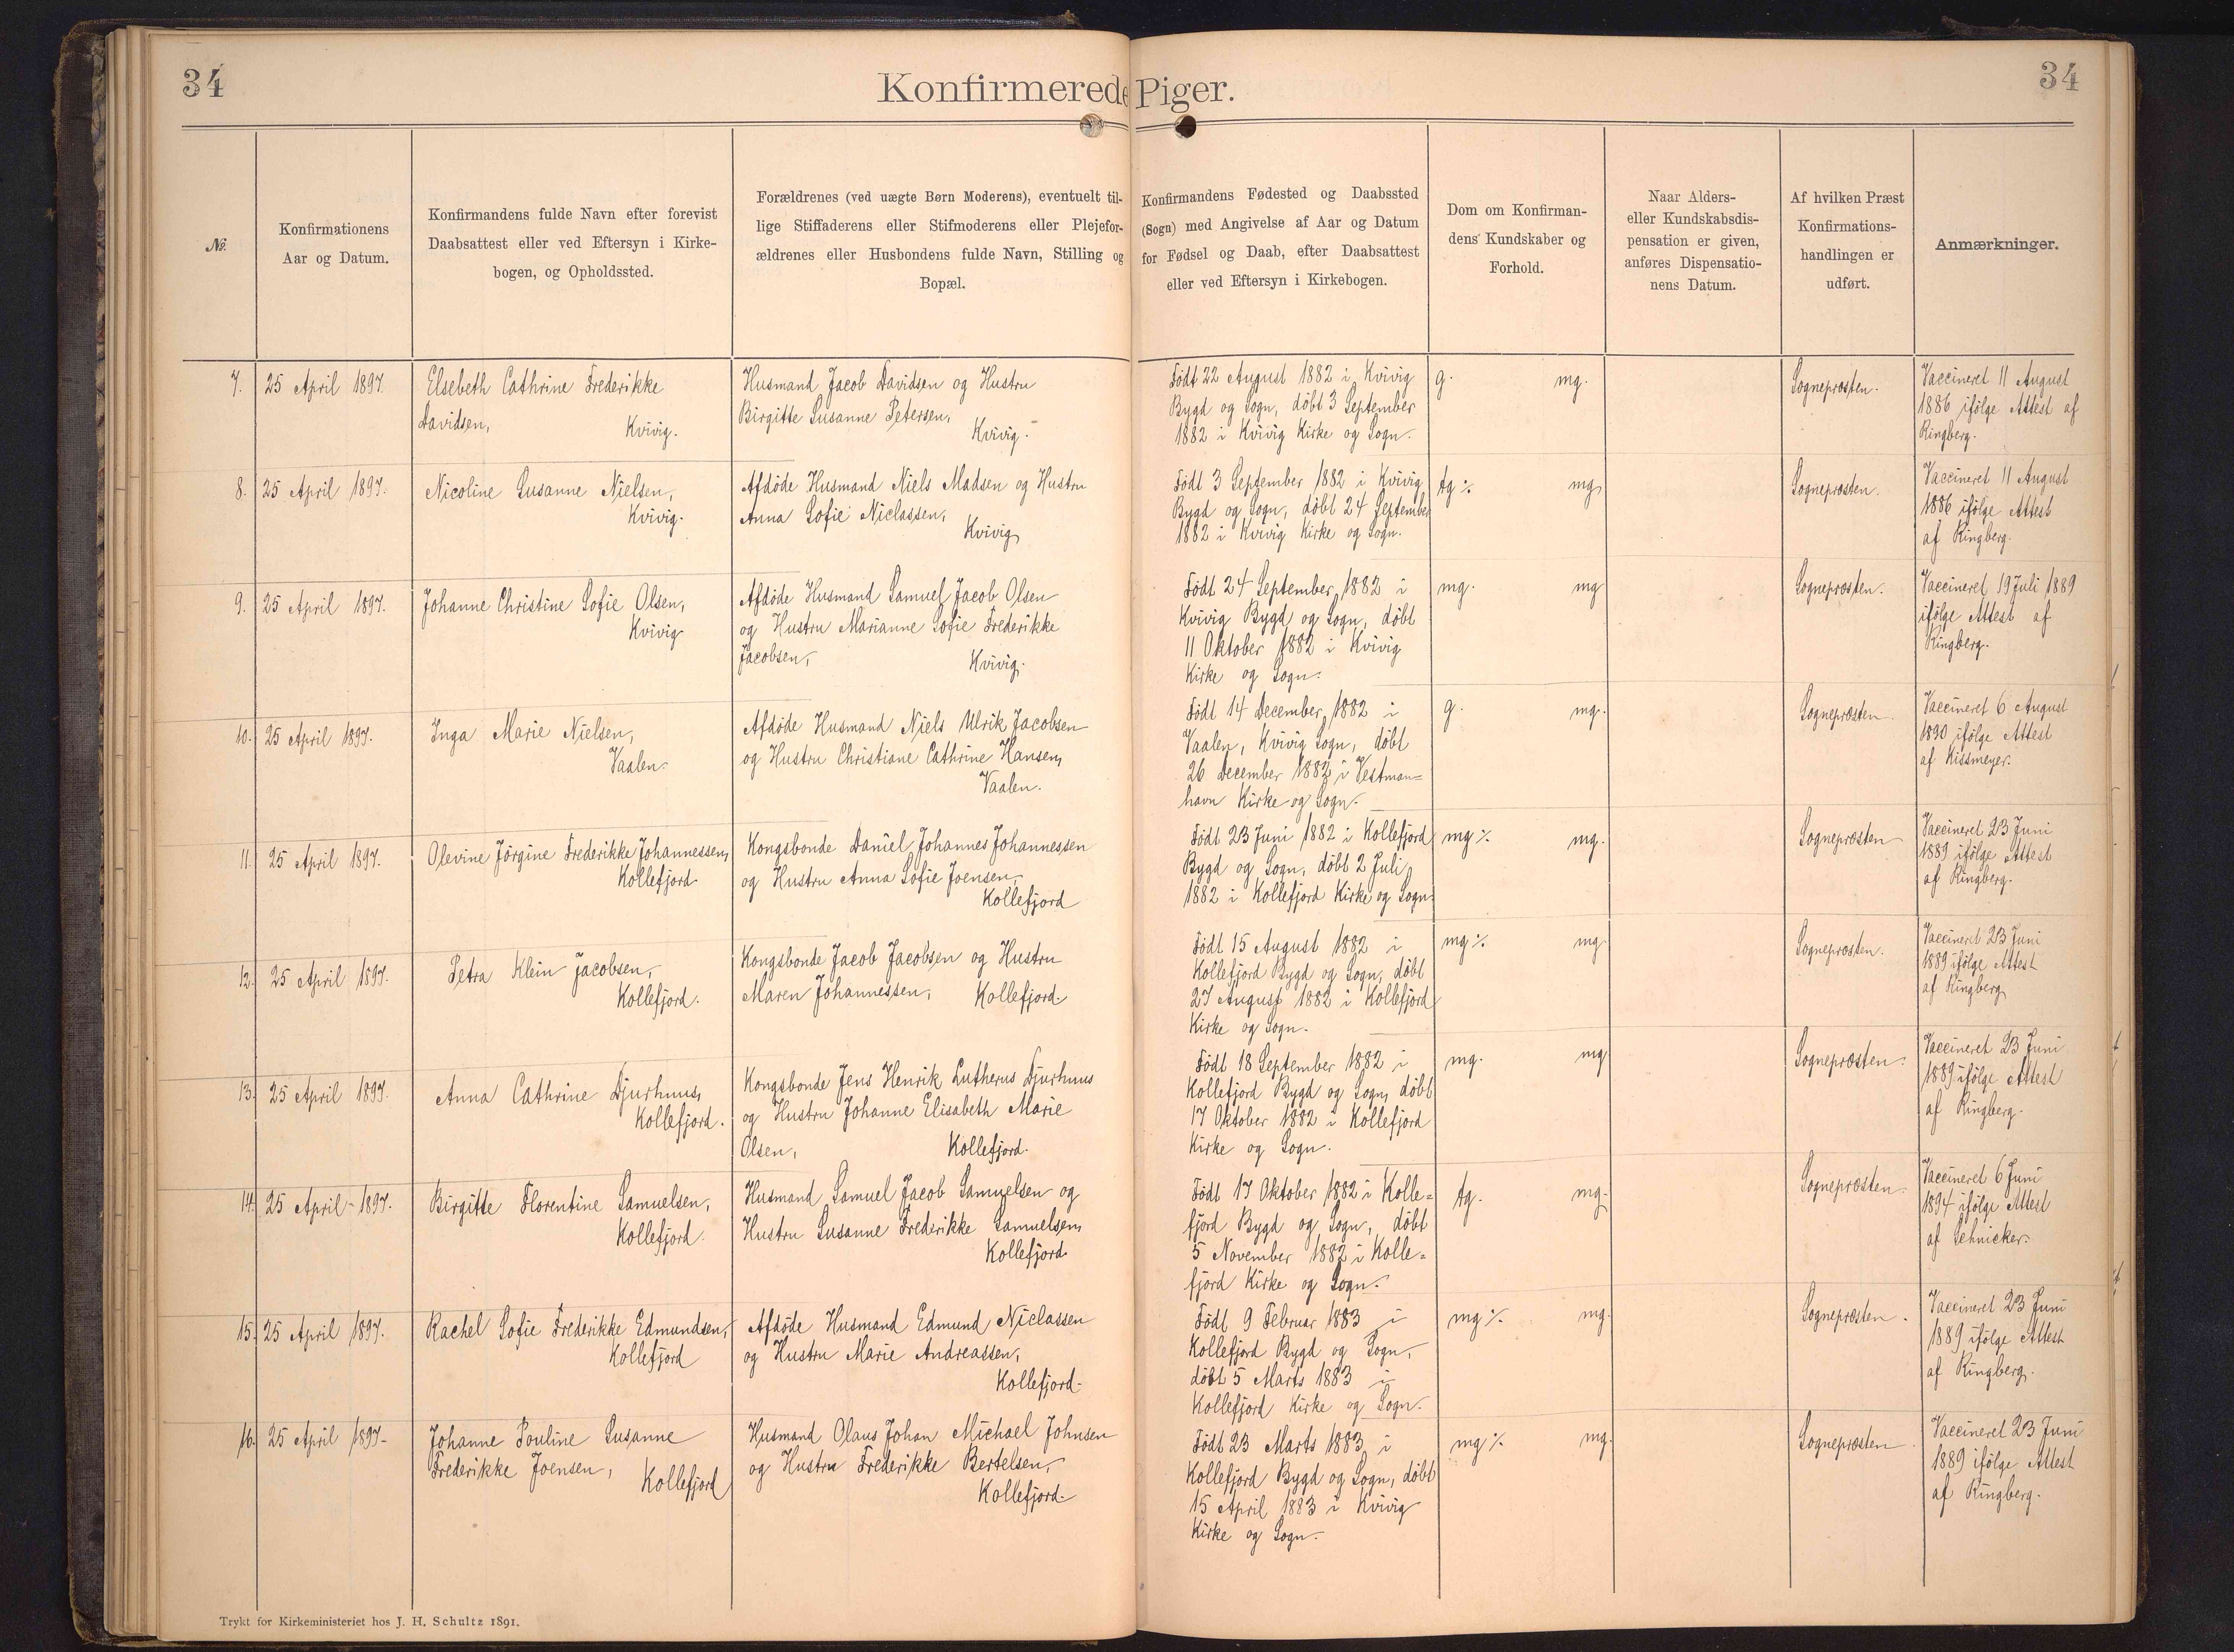 34
Konfirmerede Piger.
34
No.
Konfirmationens
Aar og Datum.
Konfirmandens fulde Navn efter forevist
Daabsattest eller ved Eftersyn i Kirke-
bogen, og Opholdssted.
Forældrenes (ved uægte Børn Moderens), eventuelt til-
lige Stiffaderens eller Stifmoderens eller Plejefor-
ældrenes eller Husbondens fulde Navn, Stilling og
Bopæl.
Konfirmandens Fødested og Daabssted
(Sogn) med Angivelse af Aar og Datum
for Fødsel og Daab, efter Daabsattest
eller ved Eftersyn i Kirkebogen.
Dom om Konfirman-
dens Kundskaber og
Forhold.
Naar Alders-
eller Kundskabsdis-
pensation er given,
anføres Dispensatio-
nens Datum.
Af hvilken Præst
Konfirmations-
handlingen er
udført.
Anmærkninger.
7.
25 April 1897.
Elsebeth Cathrine Frederikke
Davidsen,
Kvivig.
Husmand Jacob Davidsen og Hustru
Birgitte Susanne Petersen,
Kvivig.
Födt 22 August 1882 i Kvivig
Bygd og Sogn, döbt 3 September
1882 i Kvivig Kirke og Sogn.
g. mg.
Sognepræsten.
Vaccineret 11 August
1886 ifölge Attest af
Ringberg.
8.
25 April 1897.
Nicoline Susanne Nielsen,
Kvivig.
Afdöde Husmand Niels Madsen og Hustru
Anna Sofie Niclassen,
Kvivig
Födt 3 September 1882 i Kvivig
Bygd og Sogn, döbt 24 September
1882 i Kvivig Kirke og Sogn.
tg ÷ mg
Sognepræsten.
Vaccineret 11 August
1886 ifölge Attest
af Ringberg.
9.
25 April 1897.
Johanne Christine Sofie Olsen,
Kvivig
Afdöde Husmand Samuel Jacob Olsen
og Hustru Marianne Sofie Frederikke
Jacobsen,
Kvivig.
Födt 24 September 1882 i
Kvivig Bygd og Sogn, döbt
11 Oktober 1882 i Kvivig
Kirke og Sogn.
mg. mg
Sognepræsten.
Vaccineret 19 Juli 1889
ifölge Attest af
Ringberg.
10.
25 April 1897.
Inga Marie Nielsen,
Vaalen.
Afdöde Husmand Niels Ulrik Jacobsen
og Hustru Christiane Cathrine Hansen,
Vaalen.
Födt 14 December 1882 i
Vaalen, Kvivig Sogn, döbt
26 December 1882 i Vestman=
havn Kirke og Sogn.
g. mg.
Sognepræsten.
Vaccineret 6 August
1890 ifölge Attest
af Kissmeyer.
11.
25 April 1897.
Olevine Jörgine Frederikke Johannessen,
Kollefjord.
Kongsbonde Daniel Johannes Johannessen
og Hustru Anna Sofie Joensen,
Kollefjord
Födt 23 Juni 1882 i Kollefjord
Bygd og Sogn, döbt 2 Juli
1882 i Kollefjord Kirke og Sogn.
mg ÷ mg.
Sognepræsten
Vaccineret 23 Juni
1889 ifölge Attest
af Ringberg.
12.
25 April 1897.
Petra Klein Jacobsen,
Kollefjord.
Kongsbonde Jacob Jacobsen og Hustru
Maren Johannessen, Kollefjord.
Födt 15 August 1882 i
Kollefjord Bygd og Sogn, döbt
27 August 1882 i Kollefjord
Kirke og Sogn.
mg ÷ mg.
Sognepræsten.
Vaccineret 23 Juni
1889 ifölge Attest
af Ringberg
13.
25 April 1897.
Anna Cathrine Djurhuus,
Kollefjord.
Kongsbonde Jens Henrik Lutherus Djurhuus
og Hustru Johanne Elisabeth Marie
Olsen, Kollefjord.
Födt 18 September 1882 i
Kollefjord Bygd og Sogn, döbt
17 Oktober 1882 i Kollefjord
Kirke og Sogn.
mg. mg
Sognepræsten.
Vaccineret 23 Juni
1889 ifölge Attest
af Ringberg.
14.
25 April 1897.
Birgitte Florentine Samuelsen,
Kollefjord.
Husmand Samuel Jacob Samuelsen og
Hustru Susanne Frederikke Samuelsen,
Kollefjord.
Födt 17 Oktober 1882 i Kolle=
fjord Bygd og Sogn, döbt
5 November 1882 i Kolle=
fjord Kirke og Sogn.
tg. mg.
Sognepræsten.
Vaccineret 6 Juni
1894 ifölge Attest
af
15.
25 April 1897.
Rachel Sofie Frederikke Edmundsen,
Kollefjord
Afdöde Husmand Edmund Niclassen
og Hustru Marie Andreassen,
Kollefjord.
Födt 9 Februar 1883 i
Kollefjord Bygd og Sogn,
döbt 5 Marts 1883 i
Kollefjord Kirke og Sogn.
mg ÷ mg.
Sognepræsten.
Vaccineret 23 Juni
1889 ifölge Attest
af Ringberg.
16.
25 April 1897.
Johanne Pouline Susanne
Frederikke Joensen,
Kollefjord
Husmand Olaus Johan Michael Johnsen
og Hustru Frederikke Bertelsen,
Kollefjord.
Födt 23 Marts 1883 i
Kollefjord Bygd og Sogn, döbt
15 April 1883 i Kvivig
Kirke og Sogn.
mg ÷ mg.
Sognepræsten.
Vaccineret 23 Juni
1889 ifölge Attest
af Ringberg.
Trykt for Kirkeministeriet hos J. H. Schultz 1891.